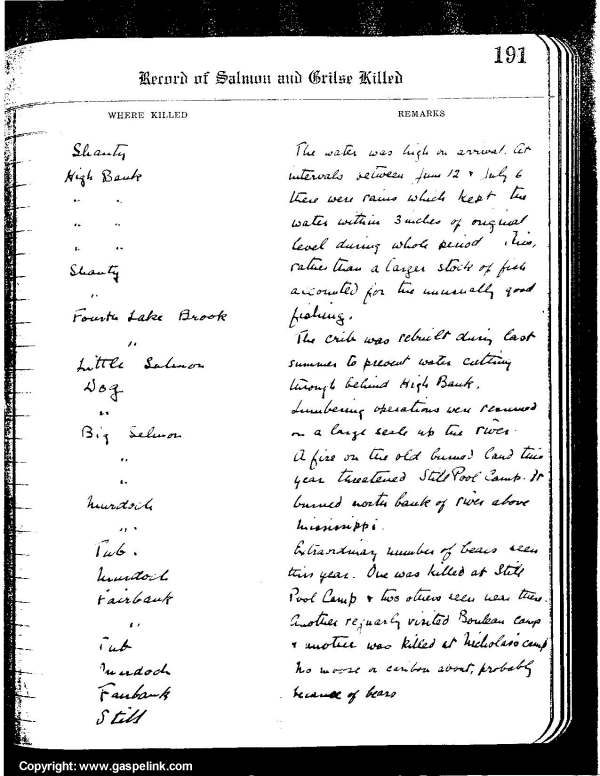 191
Record of Salmon and Grilse Killed
WHERE KILLED
REMARKS
Shanty
High Bank
" "
" "
" "
Shanty
"
Fourth Lake Brook
"
Little Salmon
Dog
"
Big Salmon
"
"
Murdoch
"
Tub.
Murdoch
Fairbank
"
Tub
Murdoch
Fairbank
Still
The water was high on arrival. At
intervals between June 12 & July 6
there were rains which kept the
water within 3 inches of original
level during whole period. This,
rather than a larger stock of fish
accounted for the unusually good
fishing.
The crib was rebuilt during last
summer to prevent water cutting
through behind High Bank.
Lumbering operations were resumed
on a large scale up the river.
A fire on the old burned land this
year threatened Still Pool Camp. It
burned north bank of river above
Mississippi.
Extraordinary number of bears seen
this year. One was killed at Still
Pool Camp & two others seen near there.
Another regularly visited camp
& another was killed at Nicholas's camp
No moose or caribou about, probably
because of bears
Copyright: www.gaspelink.com